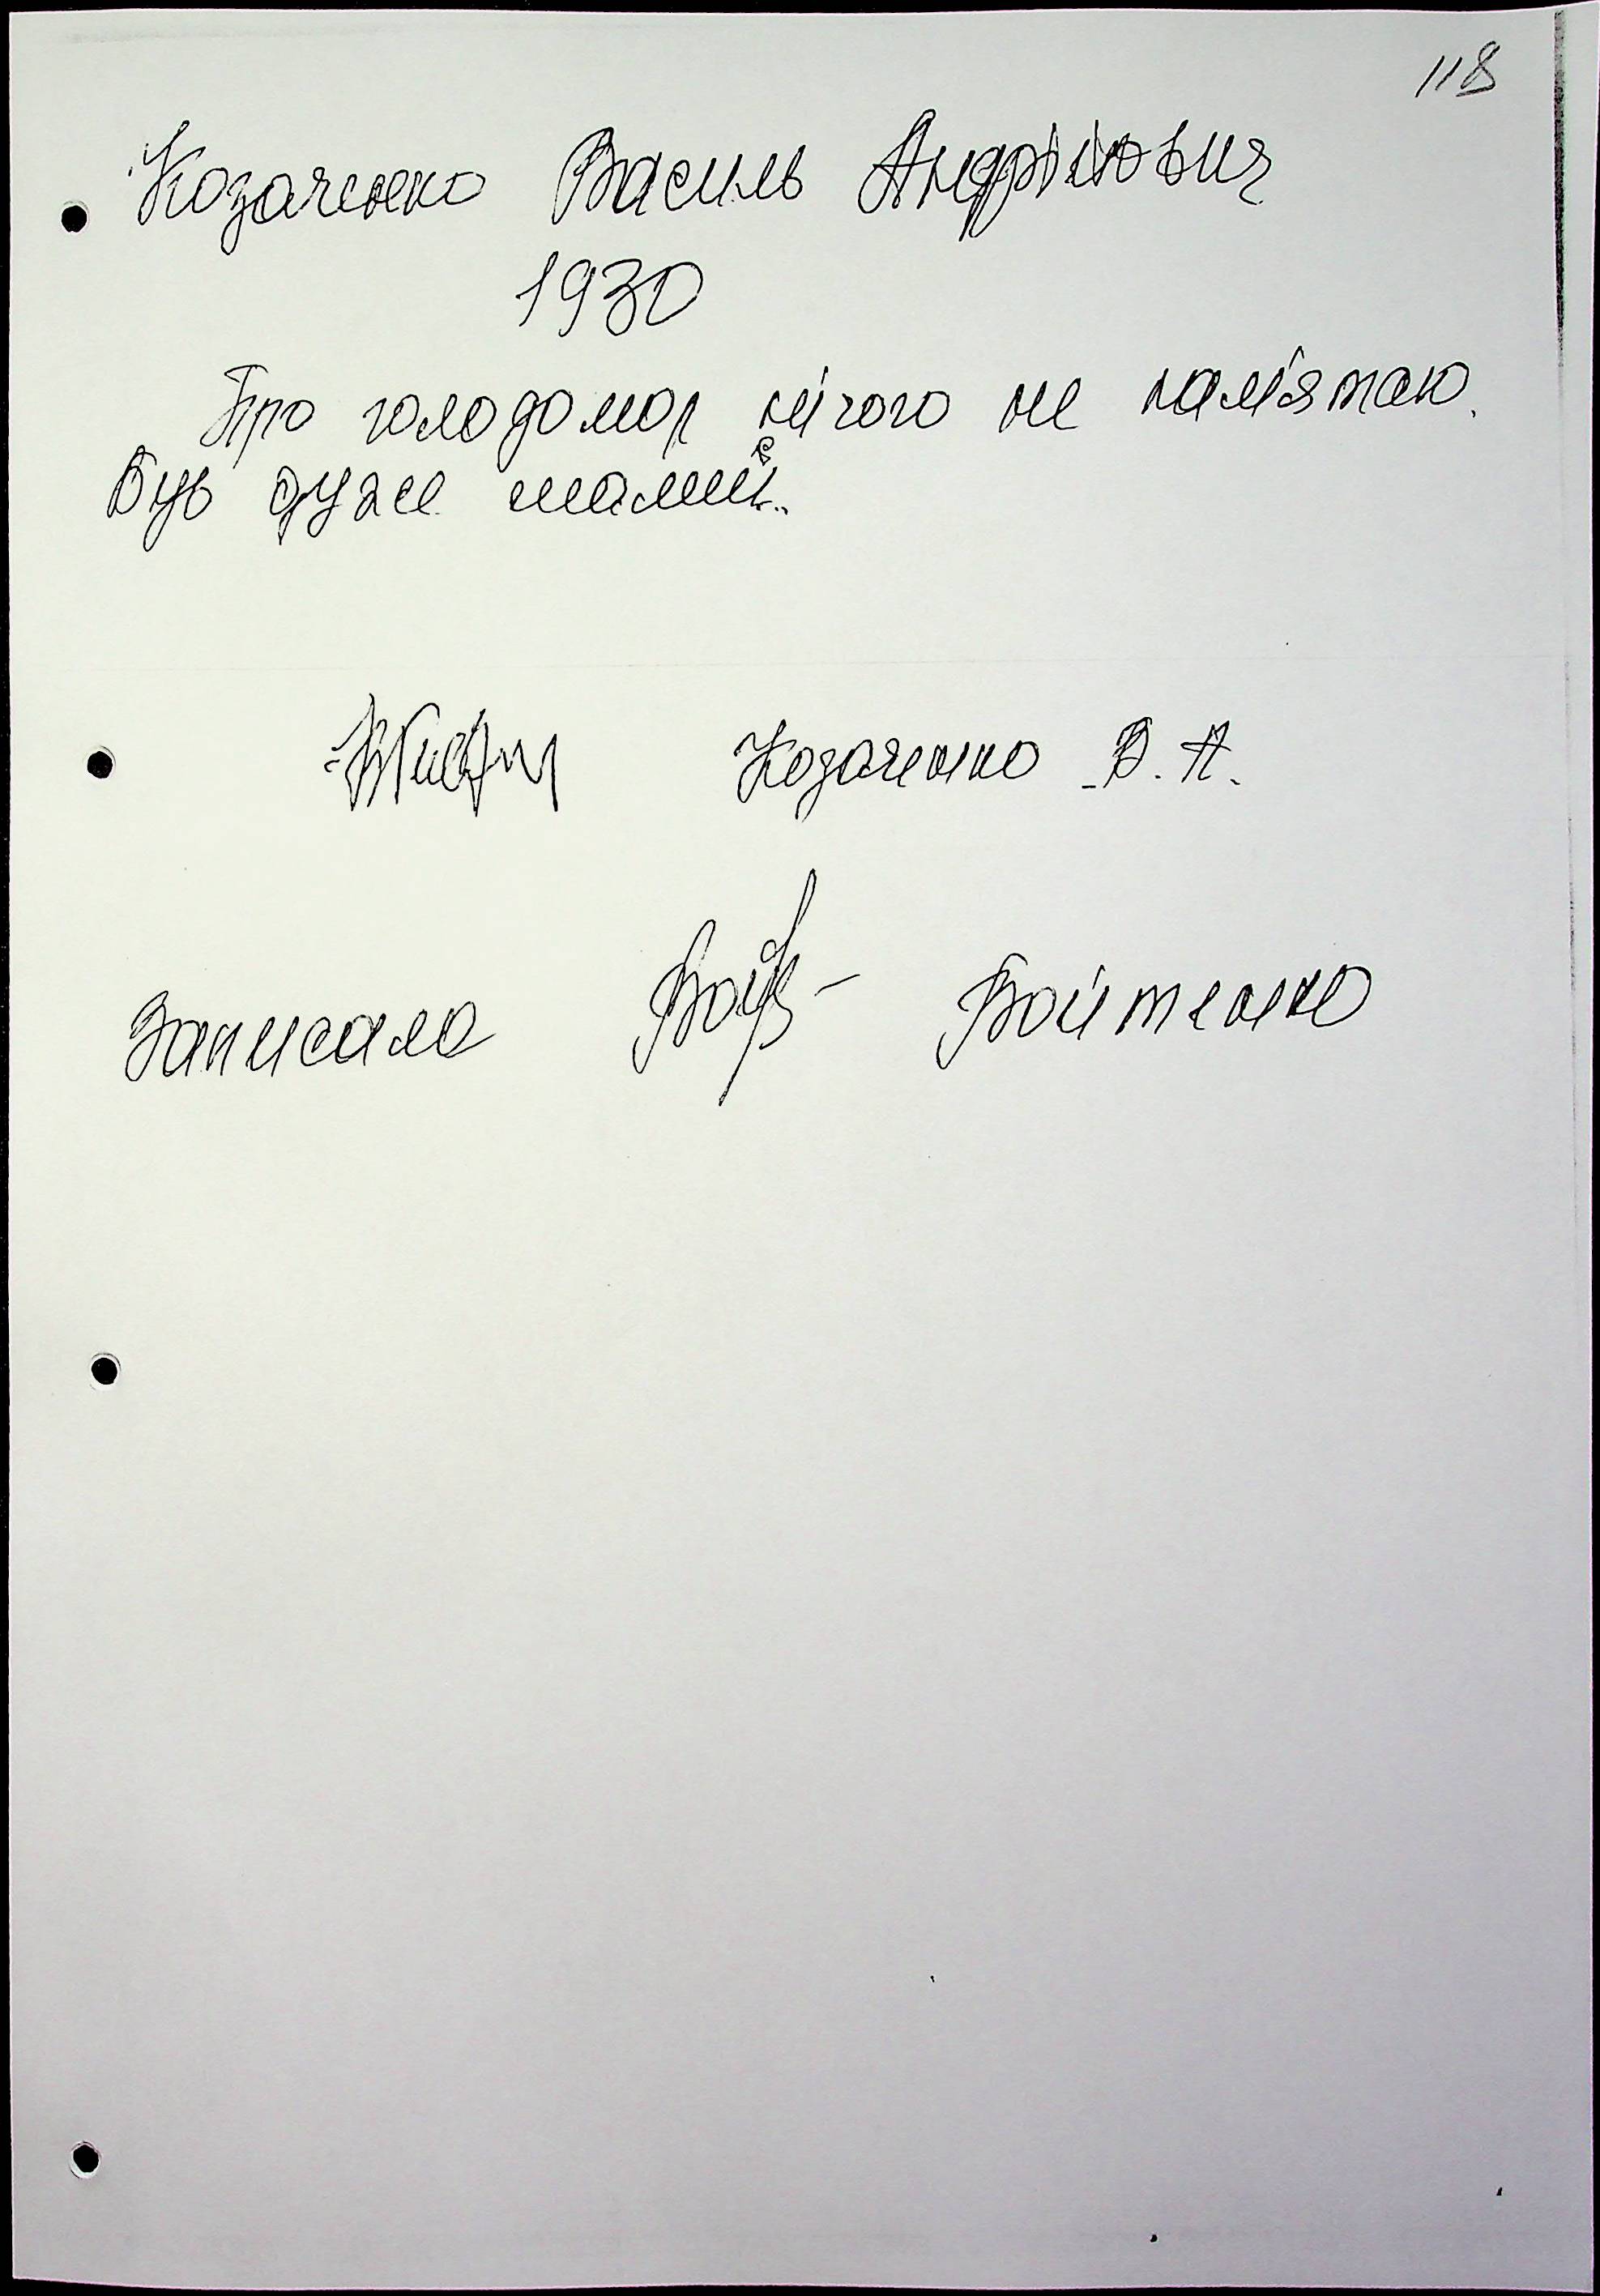 118
Козаченко Василь Андрійович
1930
Про голодомор нічого не пам'ятаю.
Був дуже малий.
Козаченко В. А.
Записала Войтенко